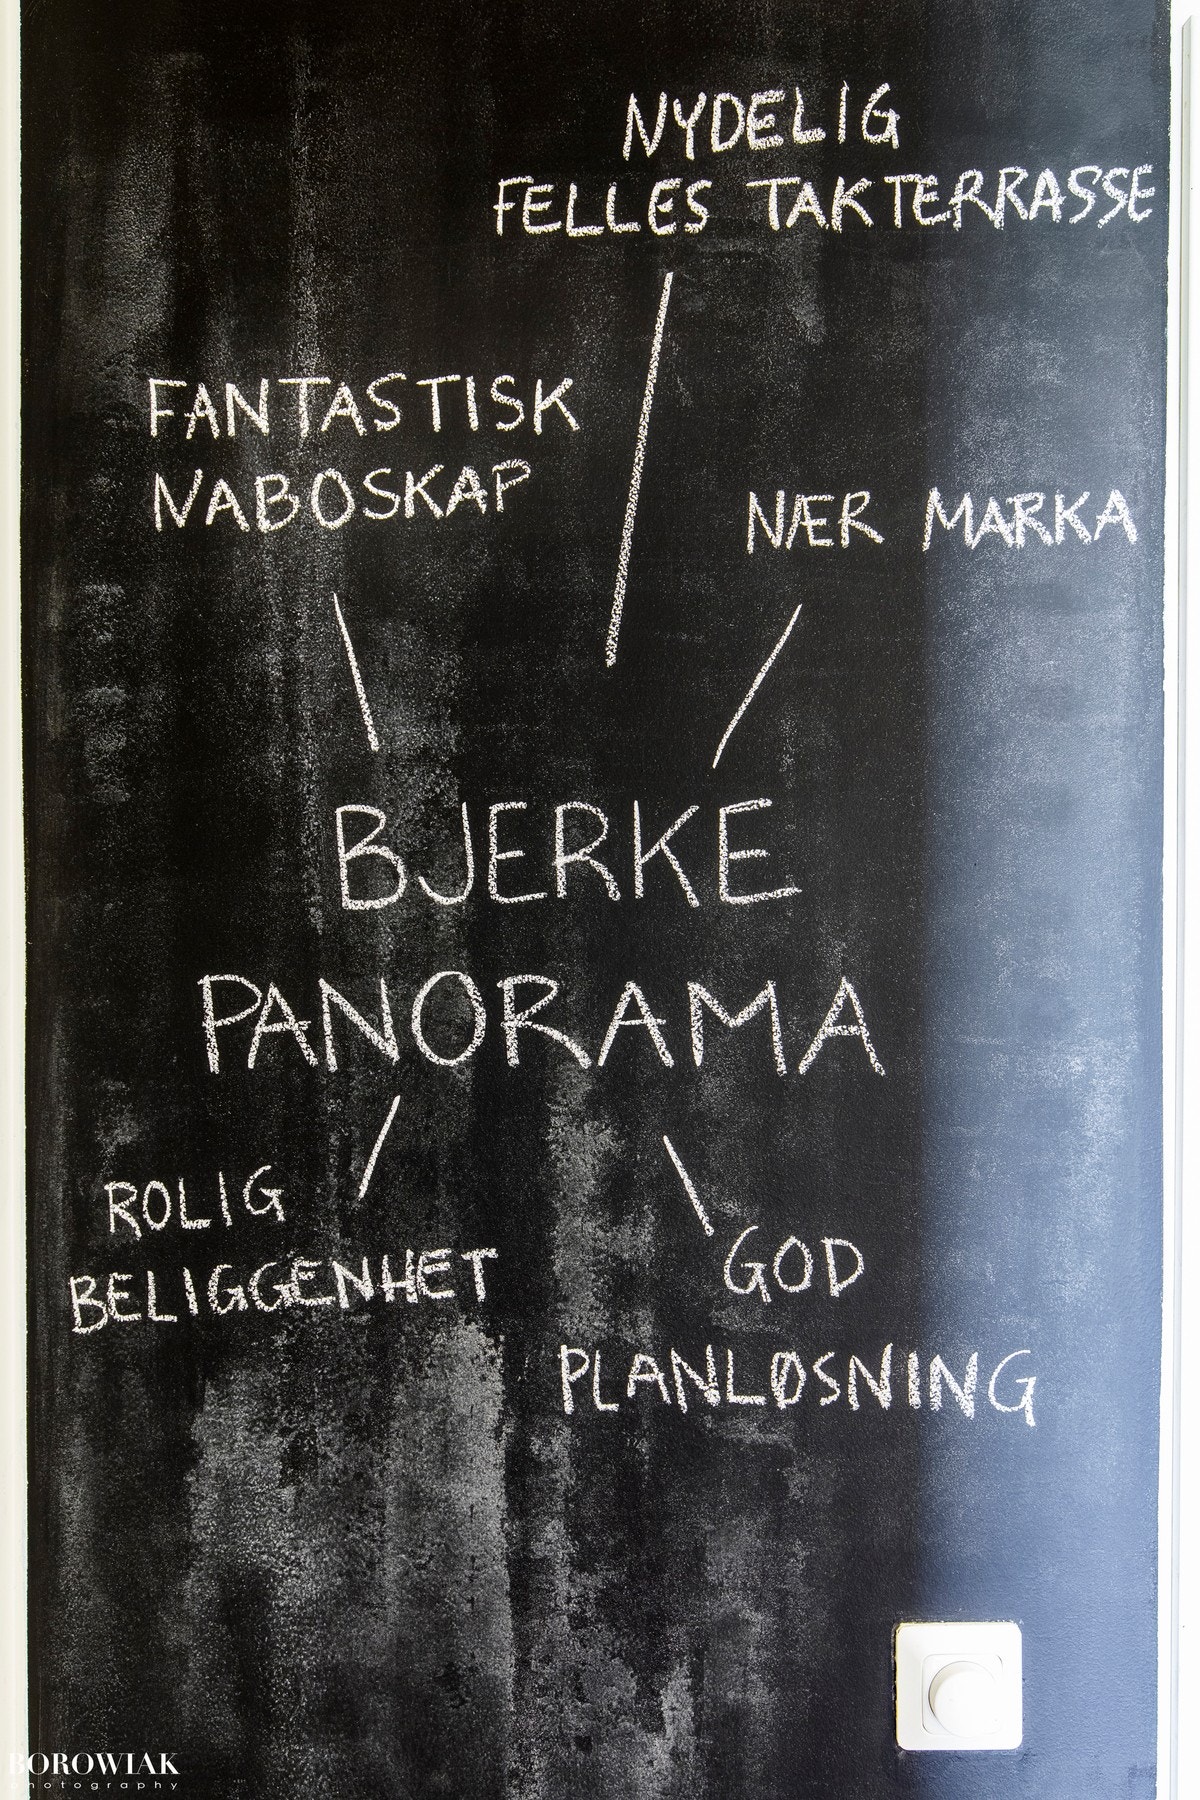 NYDELIG
FELLES TAKTERRASSE
FANTASTISK
NABOSKAP
NÆR MARKA
BJERKE
PANORAMA
ROLIG
BELIGGENHET
GOD
PLANLØSNING
BOROWIAK
photography